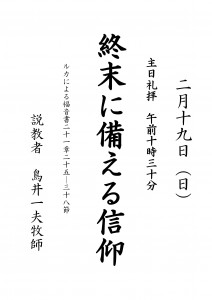 二月十九日（日）
主日礼拝　午前十時三十分
終末に備える信仰
ルカによる福音書二十一章二十五―三十八節
説教者　鳥井一夫牧師